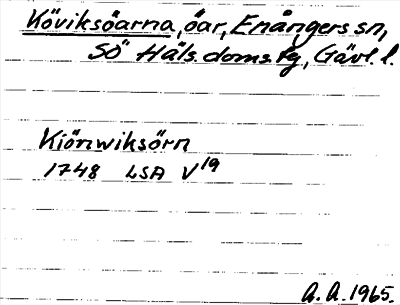 Köviksöarna, öar, Enångers sn,
SÖ Häls. doms. tg, Gävl. l.
Kiönwiksörn
1748 LSA V19
A. A. 1965.